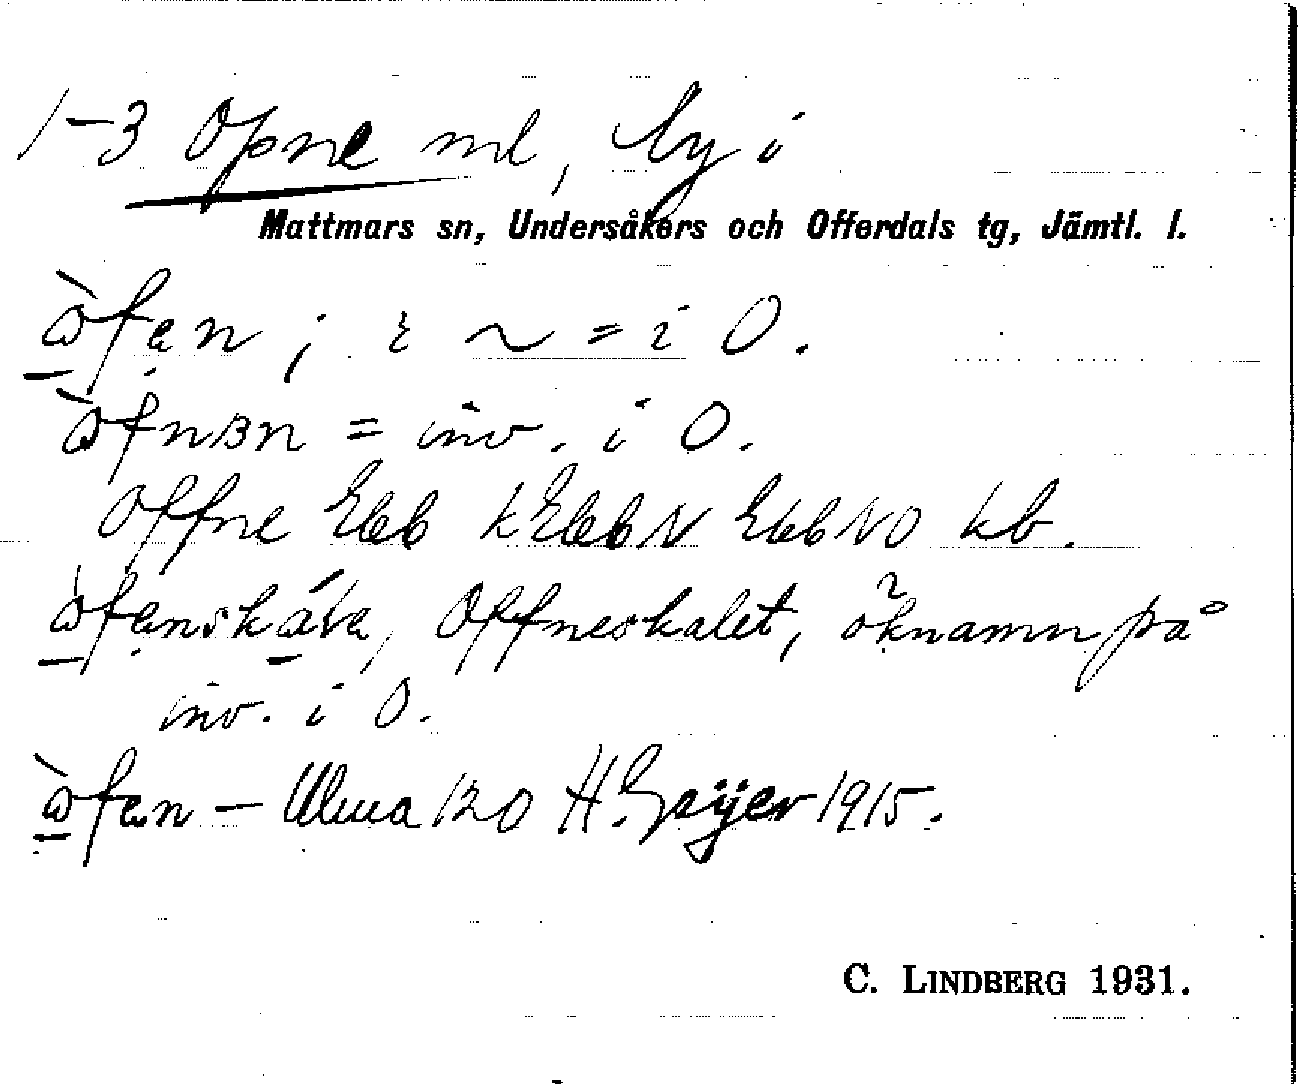 1-3 Opne ml, by i
Mattmars sn, Undersåkers och Offerdals tg, Jämtl. l.
; i ~ = i O.
= inv. i O.
Offne Ebb kEbbN EbbNO kb.
Offneskalet, öknamn på
inv. i O.
– Ulma 120 H. Geijer 1915.
C. LINDBERG 1931.